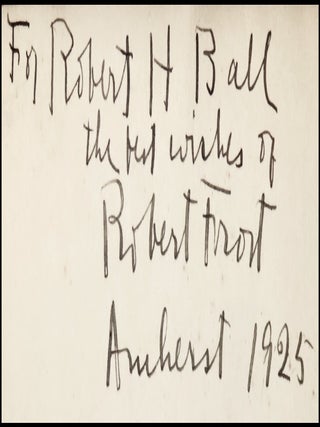 For Robert H Ball
the best wishes of
Robert Frost
Amherst 1925